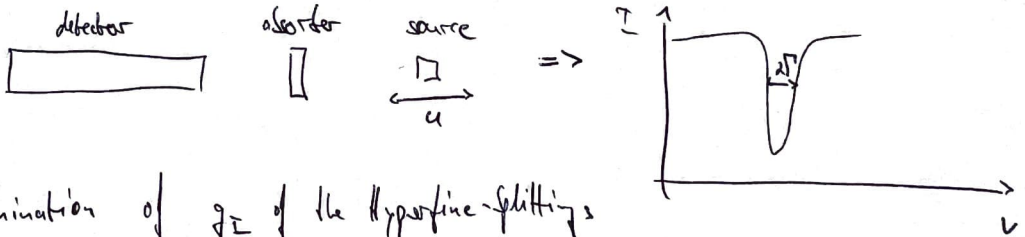 detector absorber source
=>
I
2Γ
u
v
mination of g_I of the Hyperfine-Splittings